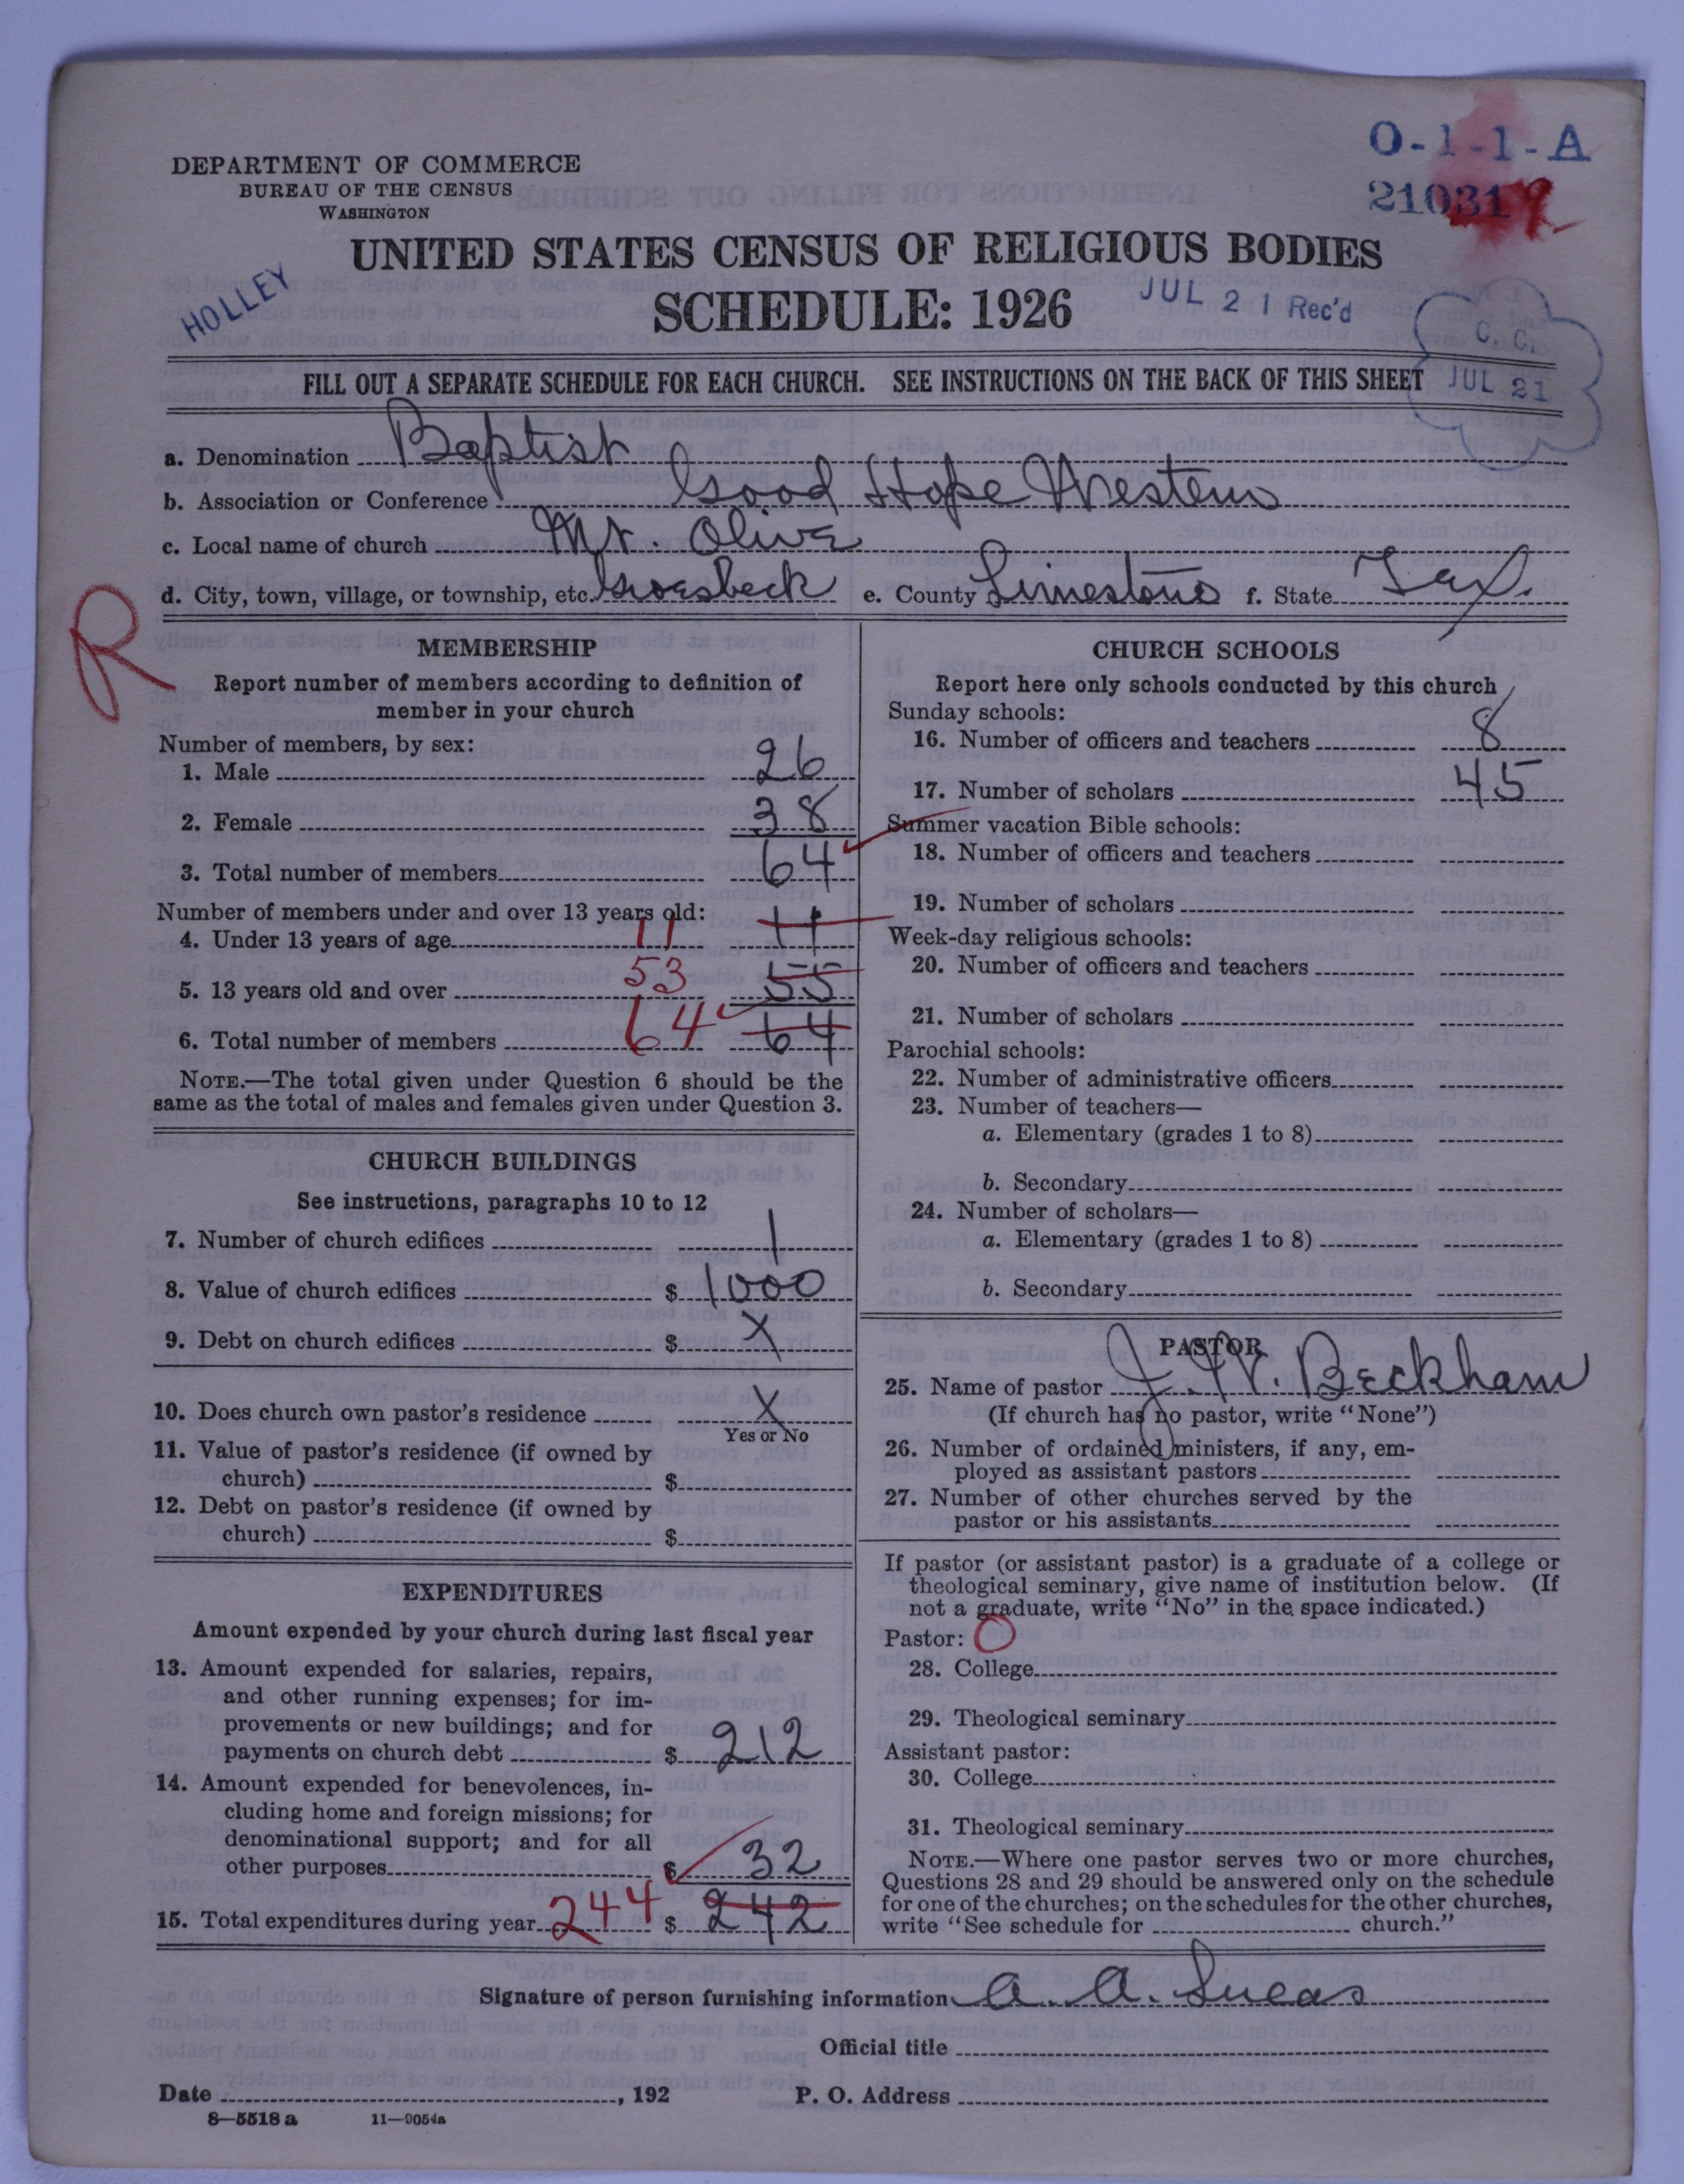 O-1-1-A
DEPARTMENT OF COMMERCE
BUREAU OF THE CENSUS
WASHINGTON
21031
UNITED STATES CENSUS OF RELIGIOUS BODIES
HOLLEY
SCHEDULE: 1926
JUL 21 Rec'd
C. C.
JUL 21
FILL OUT A SEPARATE SCHEDULE FOR EACH CHURCH. SEE INSTRUCTIONS ON THE BACK OF THIS SHEET
a. Denomination Baptist
b. Association or Conference Good Hope Western
c. Local name of church Mt. Olive
d. City, town, village, or township, etc. Groesbeck e. County Limestone f. State Tex.
R
MEMBERSHIP
Report number of members according to definition of
member in your church
Number of members, by sex:
1. Male 26
2. Female 38
3. Total number of members 64
Number of members under and over 13 years old:
4. Under 13 years of age 11 11
5. 13 years old and over 53 55
6. Total number of members 64 64
NOTE.—The total given under Question 6 should be the
same as the total of males and females given under Question 3.
CHURCH BUILDINGS
See instructions, paragraphs 10 to 12
7. Number of church edifices 1
8. Value of church edifices $ 1000
9. Debt on church edifices $ X
10. Does church own pastor's residence X
Yes or No
11. Value of pastor's residence (if owned by
church) $
12. Debt on pastor's residence (if owned by
church) $
EXPENDITURES
Amount expended by your church during last fiscal year
13. Amount expended for salaries, repairs,
and other running expenses; for im-
provements or new buildings; and for
payments on church debt $ 212
14. Amount expended for benevolences, in-
cluding home and foreign missions; for
denominational support; and for all
other purposes $ 32
15. Total expenditures during year 244 $ 242
CHURCH SCHOOLS
Report here only schools conducted by this church
Sunday schools:
16. Number of officers and teachers 8
17. Number of scholars 45
Summer vacation Bible schools:
18. Number of officers and teachers
19. Number of scholars
Week-day religious schools:
20. Number of officers and teachers
21. Number of scholars
Parochial schools:
22. Number of administrative officers
23. Number of teachers—
a. Elementary (grades 1 to 8)
b. Secondary
24. Number of scholars—
a. Elementary (grades 1 to 8)
b. Secondary
PASTOR
25. Name of pastor J. W. Beckham
(If church has no pastor, write "None")
26. Number of ordained ministers, if any, em-
ployed as assistant pastors
27. Number of other churches served by the
pastor or his assistants
If pastor (or assistant pastor) is a graduate of a college or
theological seminary, give name of institution below. (If
not a graduate, write "No" in the space indicated.)
Pastor: O
28. College
29. Theological seminary
Assistant pastor:
30. College
31. Theological seminary
NOTE.—Where one pastor serves two or more churches,
Questions 28 and 29 should be answered only on the schedule
for one of the churches; on the schedules for the other churches,
write "See schedule for church."
Signature of person furnishing information A. A. Lucas
Official title
Date , 192 P. O. Address
8—5518 a 11—9054a